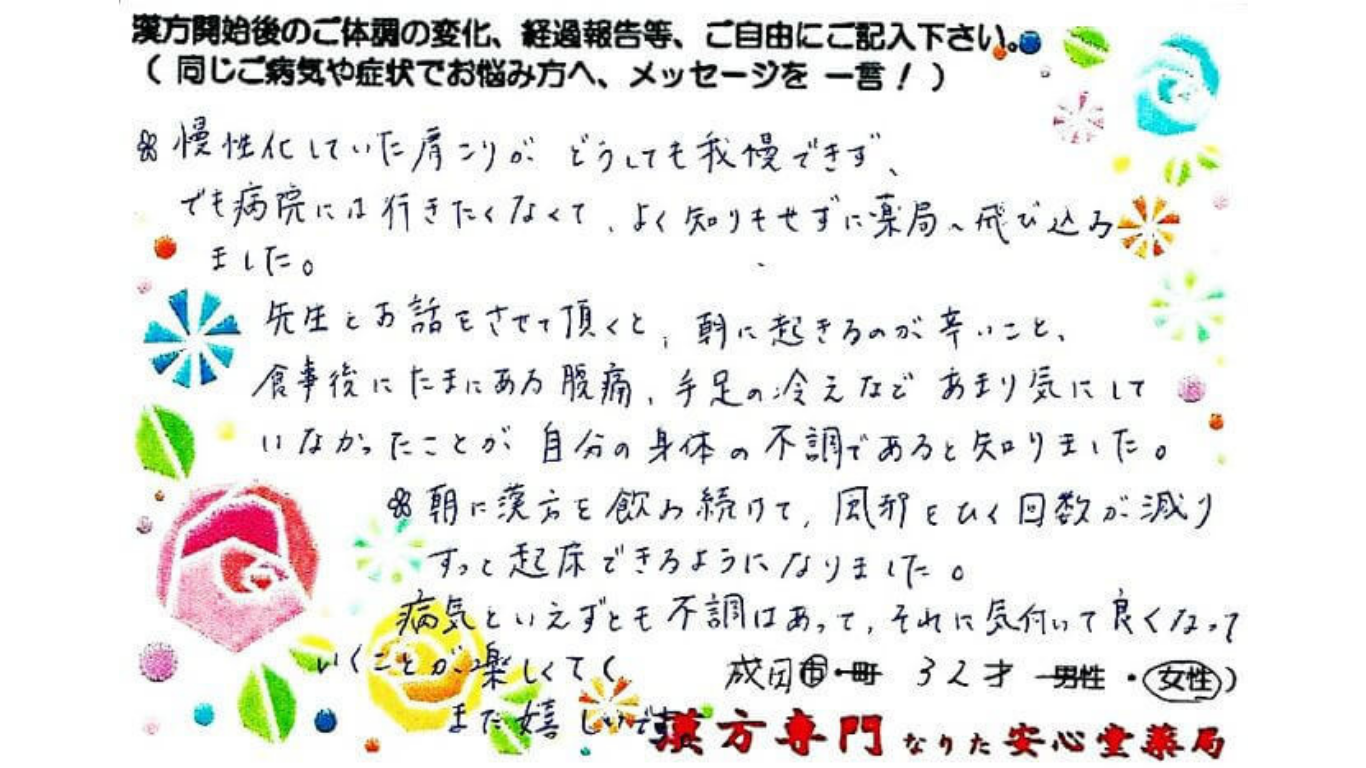 漢方開始後のご体調の変化、経過報告等、ご自由にご記入下さい。
（ 同じご病気や症状でお悩み方へ、メッセージを 一言！ ）
慢性化していた肩こりが どうしても我慢できず、
でも病院には行きたくなくて、よく知りもせずに薬局へ飛び込み
ました。
先生とお話をさせて頂くと、朝に起きるのが辛いこと、
食事後にたまにある腹痛、手足の冷えなど あまり気にして
いなかったことが 自分の身体の不調であると知りました。
朝に漢方を飲み続けて、風邪をひく回数が減り
すっと起床できるようになりました。
病気といえずとも不調はあって、それに気付いて良くなって
いくことが楽しくて（ 成田市・町 32才 男性・女性）
また嬉しいです。
漢方専門 なりた 安心堂薬局